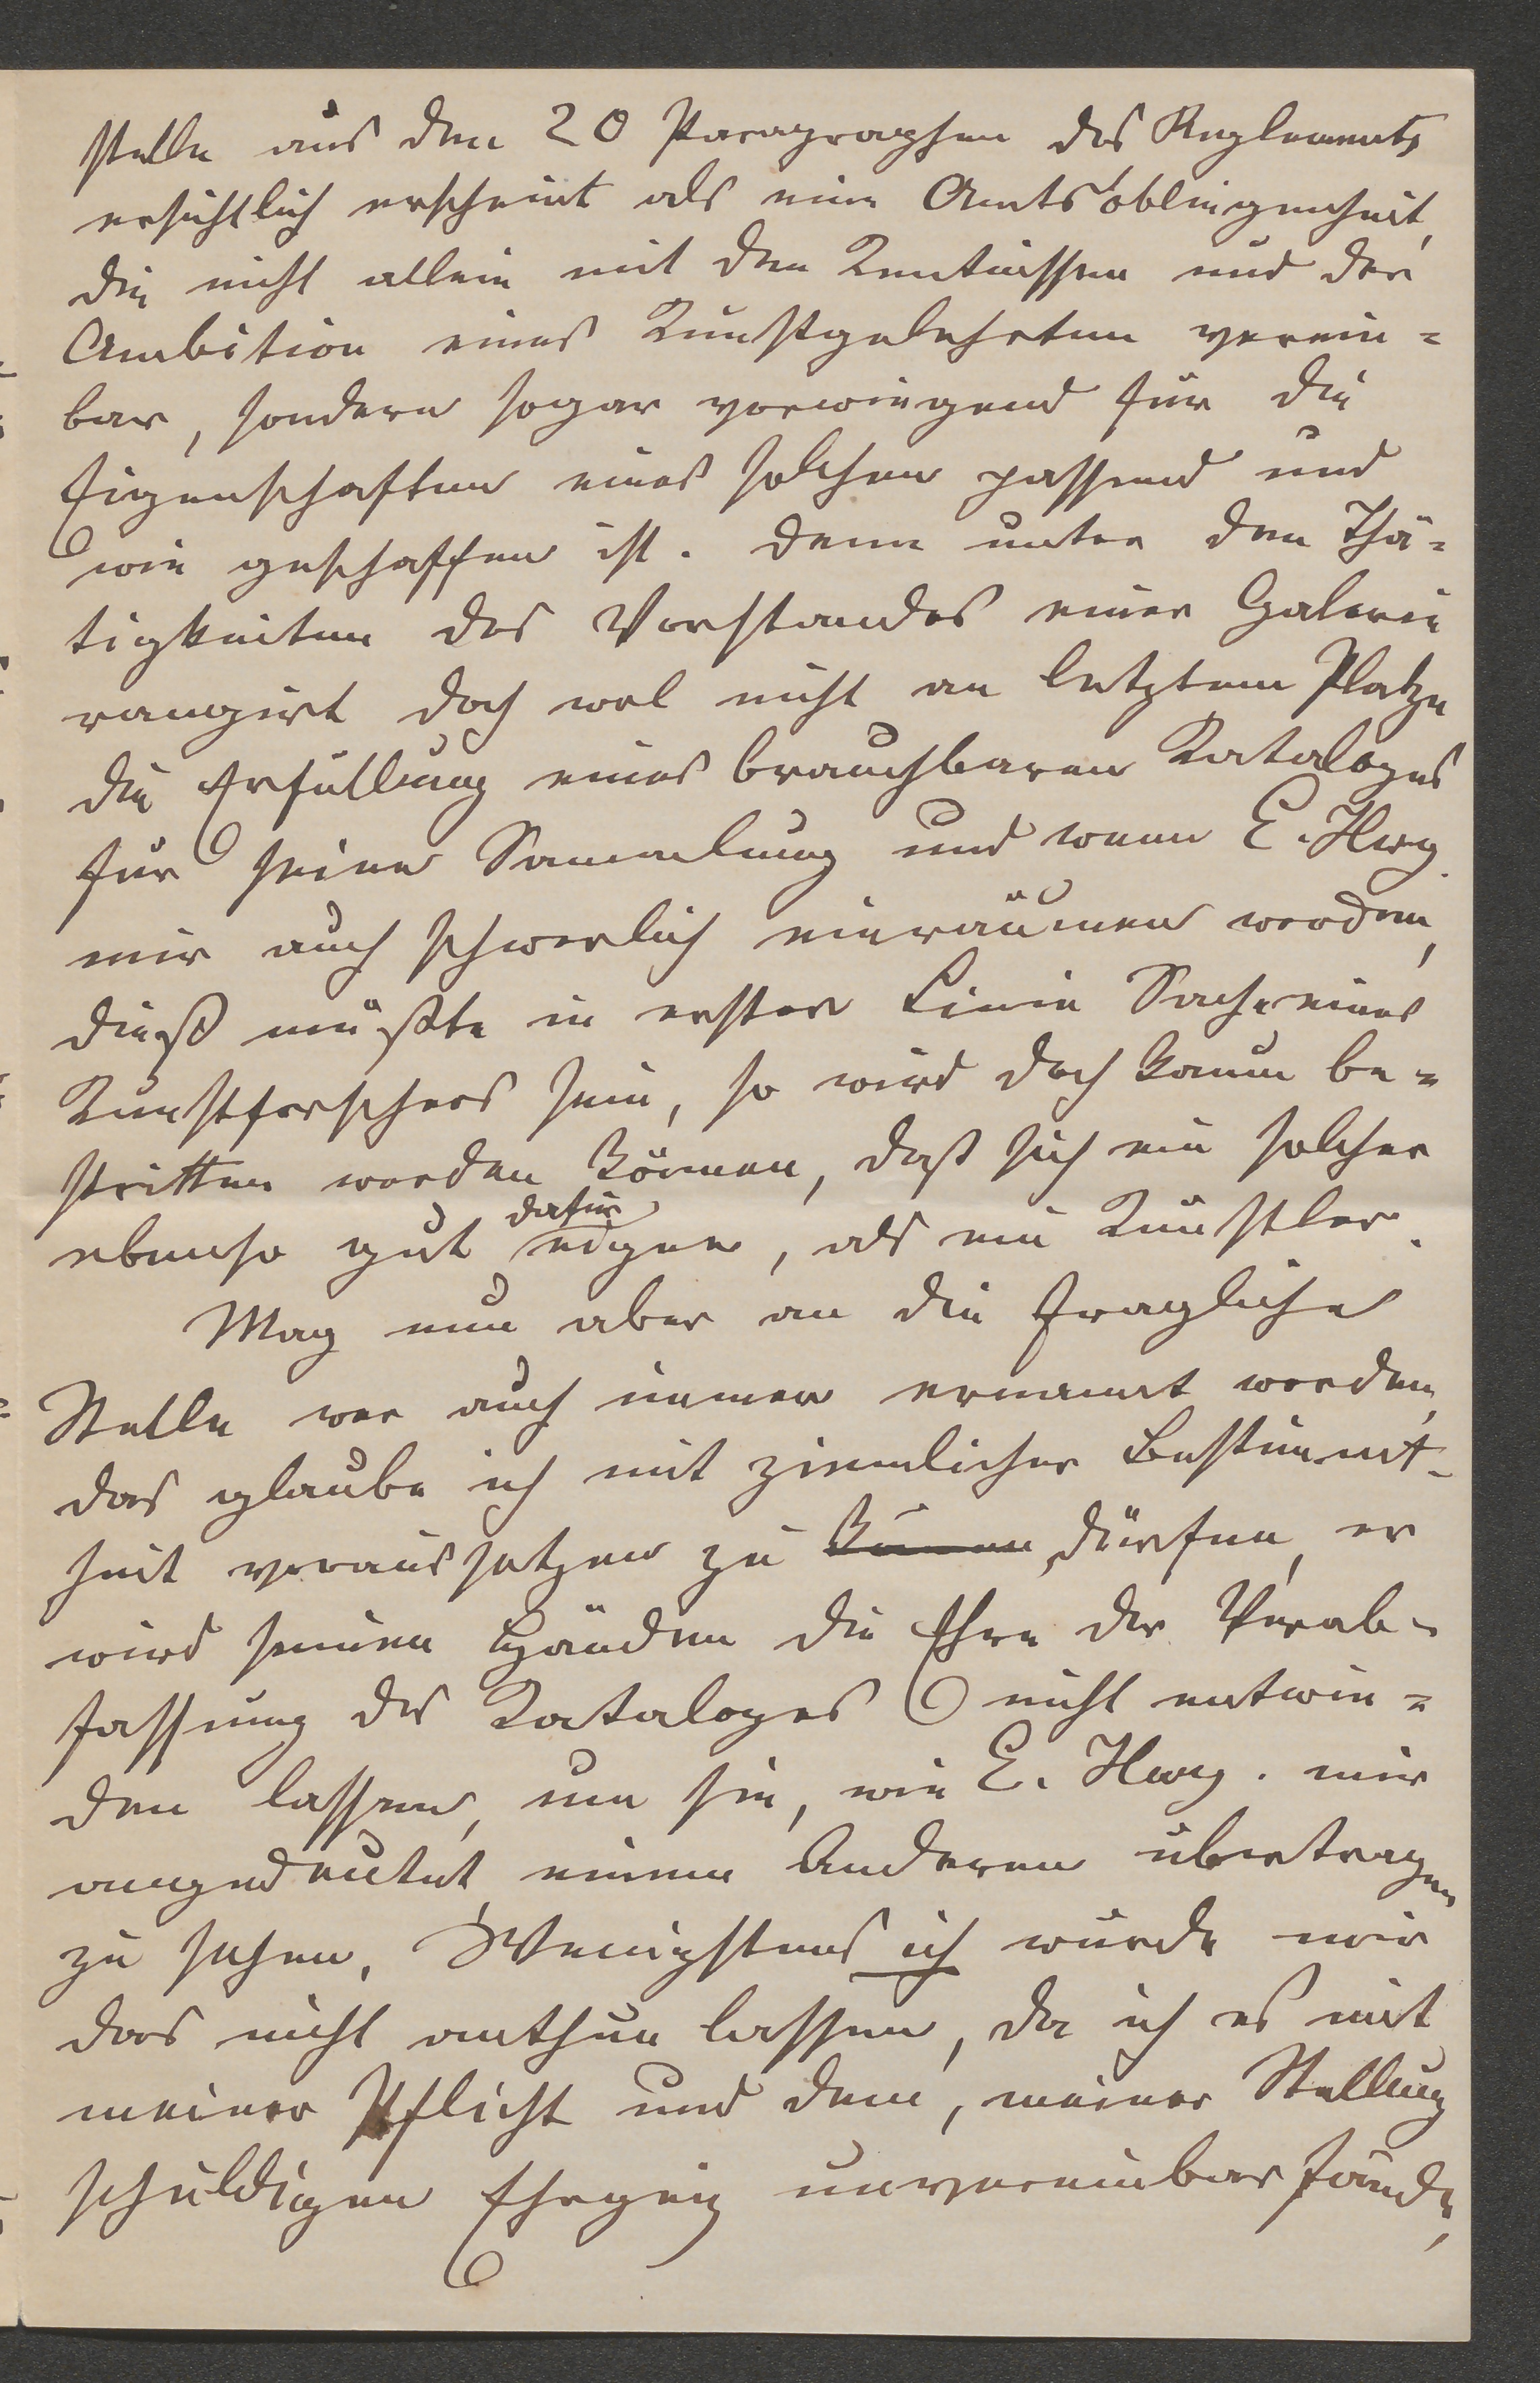 stelle aus den 20 Paragraphen des Reglements
ersichtlich erscheint als eine Amtsobliegenheit,
die nicht allein mit den Kentnissen und der
Ambition eines Kunstgelehrten verein=
bar, sondern sogar vorwiegend für die
Eigenschaften eines solchen passend und
wie geschaffen ist. Denn unter den Thä=
tigkeiten des Vorstandes einer Galerie
rangirt doch wol nicht an letztem Platze
die Erfüllung eines brauchbaren Kataloges
für seine Sammlung und wenn E. Hwg.
mir auch schwerlich einräumen werden,
dieß müßte in erster Linie Sache eines
Kunstforschers sein, so wird doch kaum be=
stritten werden können, daß sich ein solcher
ebenso gut dafür eigne, als ein Künstler.
Mag nun aber an die fragliche
Stelle wer auch immer ernannt werden,
das glaube ich mit ziemlicher Bestimmt-
heit voraussetzen zu dürfen, er
wird seinen Händen die Ehre der Verab-
fassung des Kataloges nicht entwin=
den lassen, um sie, wie E. Hwg. mir
angedeutet, einem Anderen übertragen
zu sehen. Wenigstens ich würde mir
das nicht anthun lassen, da ich es mit
meiner Pflicht und dem, meiner Stellung
schuldigen Ehrgeiz unvereinbar fände,